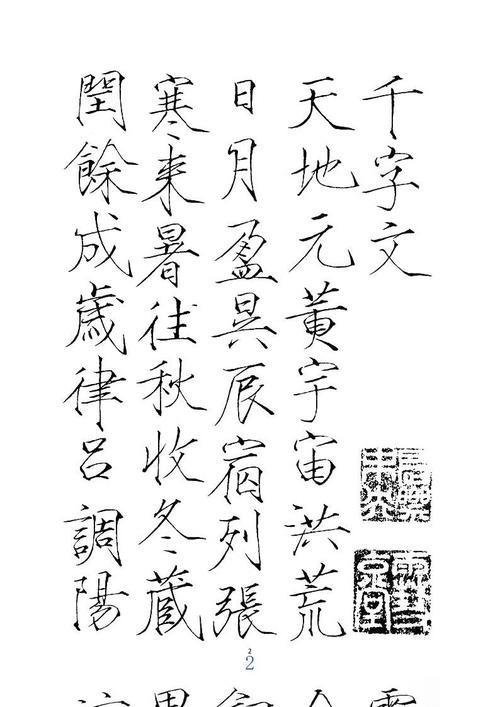 千字文
天地元黄宇宙洪荒
日月盈昃辰宿列張
寒来暑往秋收冬藏
閏餘成歲律呂調陽
2